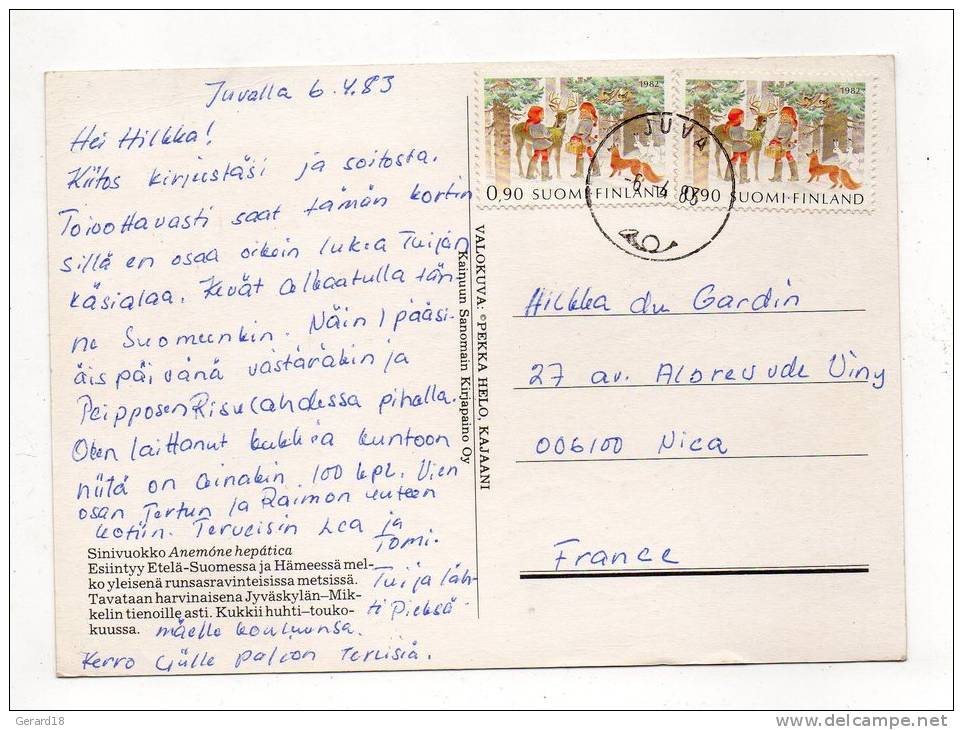 Juvalla 6.4.83
Hei Hilkka!
Kiitos kirjeestäsi ja soitosta.
Toivottavasti saat tämän kortin
sillä en osaa oikein lukea Tuijan
käsialaa. Kevät alkaa tulla tän-
ne Suomeenkin. Näin 1 pääsi-
äis päivänä västäräkin ja
Peipposen Risulahdessa pihalla.
Olen laittanut kukkia kuntoon
niitä on ainakin 100 kpl. Vien
osan Tertun ja Raimon uuteen
kotiin. Terveisin Lea ja
Tomi.
Tuija läh-
ti Pieksä-
mäelle kouluunsa.
Kerro paljon Terveisiä.
Sinivuokko Anemóne hepática
Esiintyy Etelä-Suomessa ja Hämeessä mel-
ko yleisenä runsasravinteisissa metsissä.
Tavataan harvinaisena Jyväskylän–Mik-
kelin tienoille asti. Kukkii huhti–touko-
kuussa.
VALOKUVA: ©PEKKA HELO, KAJAANI
Kainuun Sanomain Kirjapaino Oy
1982
0,90 SUOMI·FINLAND
1982
0,90 SUOMI·FINLAND
JUVA
-6.-4 83
Hilkka du Gardin
27 av. Viny
006100 Nica
France
Gerard18
www.delcampe.net